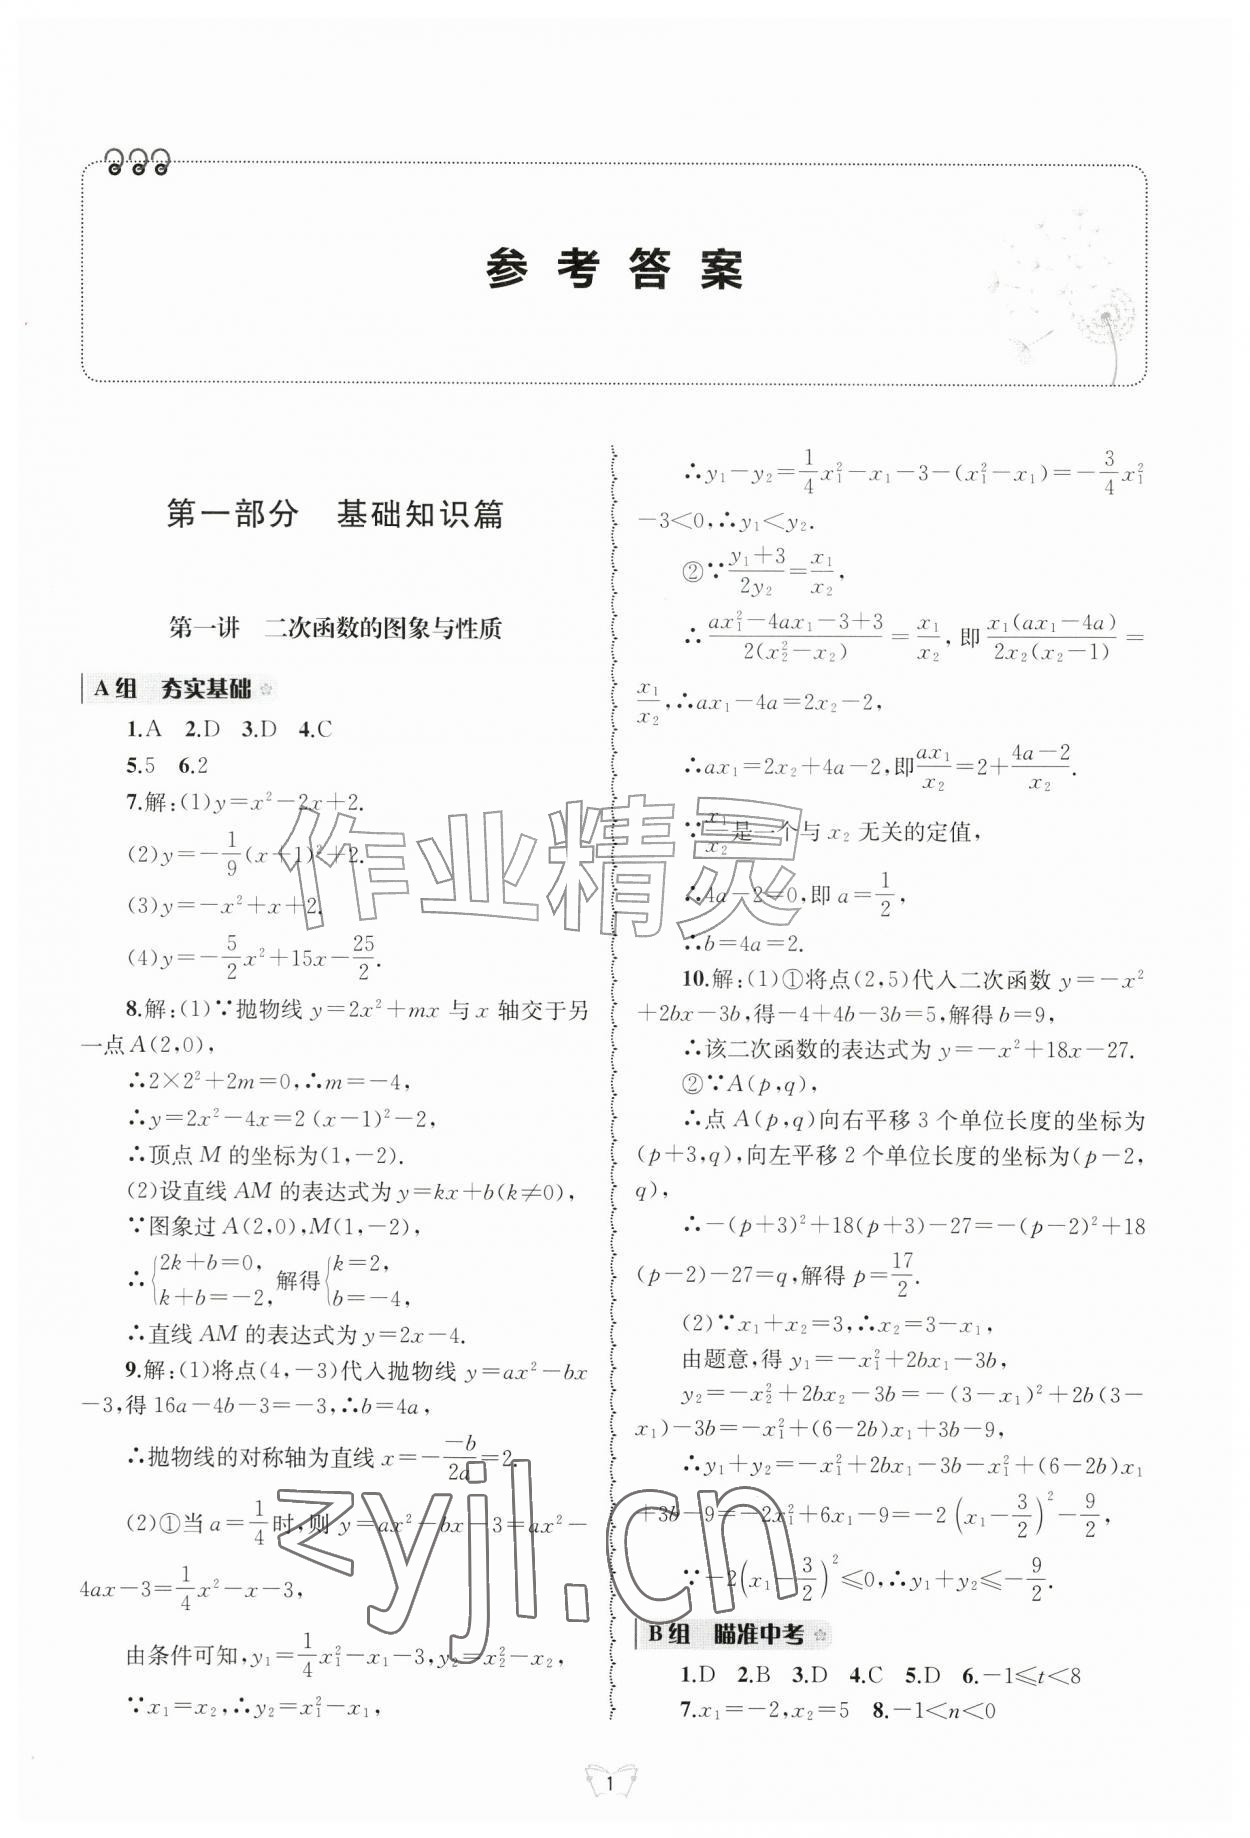 参考答案
第一部分 基础知识篇
第一讲 二次函数的图象与性质
A组 夯实基础
1.A 2.D 3.D 4.C
5.5 6.2
7.解:(1)y=x²-2x+2.
(2)y=-1/9(x+1)²+2.
(3)y=-x²+x+2.
(4)y=-5/2x²+15x-25/2.
8.解:(1)∵抛物线 y=2x²+mx 与 x 轴交于另
一点A(2,0),
∴2×2²+2m=0,∴m=-4,
∴y=2x²-4x=2(x-1)²-2,
∴顶点 M 的坐标为(1,-2).
(2)设直线 AM 的表达式为 y=kx+b(k≠0),
∵图象过 A(2,0),M(1,-2),
∴{2k+b=0, k+b=-2, 解得{k=2, b=-4,
∴直线 AM 的表达式为 y=2x-4.
9.解:(1)将点(4,-3)代入抛物线 y=ax²-bx
-3,得 16a-4b-3=-3,∴b=4a,
∴抛物线的对称轴为直线 x=-(-b)/(2a)=2.
(2)①当 a=1/4时,则 y=ax²-bx-3=ax²-
4ax-3=1/4x²-x-3,
由条件可知,y₁=1/4x₁²-x₁-3,y₂=x₂²-x₂,
∵x₁=x₂,∴y₂=x₁²-x₁,
∴y₁-y₂=1/4x₁²-x₁-3-(x₁²-x₁)=-3/4x₁²
-3<0,∴y₁<y₂.
②∵(y₁+3)/(2y₂)=x₁/x₂,
∴(ax₁²-4ax₁-3+3)/(2(x₂²-x₂))=x₁/x₂,即x₁(ax₁-4a)/(2x₂(x₂-1))=
x₁/x₂,∴ax₁-4a=2x₂-2,
∴ax₁=2x₂+4a-2,即ax₁/x₂=2+(4a-2)/x₂.
∵x₁/x₂是一个与 x₂ 无关的定值,
∴4a-2=0,即 a=1/2,
∴b=4a=2.
10.解:(1)①将点(2,5)代入二次函数 y=-x²
+2bx-3b,得-4+4b-3b=5,解得 b=9,
∴该二次函数的表达式为 y=-x²+18x-27.
②∵A(p,q),
∴点 A(p,q)向右平移 3 个单位长度的坐标为
(p+3,q),向左平移 2 个单位长度的坐标为(p-2,
q),
∴-(p+3)²+18(p+3)-27=-(p-2)²+18
(p-2)-27=q,解得 p=17/2.
(2)∵x₁+x₂=3,∴x₂=3-x₁,
由题意,得 y₁=-x₁²+2bx₁-3b,
y₂=-x₂²+2bx₂-3b=-(3-x₁)²+2b(3-
x₁)-3b=-x₁²+(6-2b)x₁+3b-9,
∴y₁+y₂=-x₁²+2bx₁-3b-x₁²+(6-2b)x₁
+3b-9=-2x₁²+6x₁-9=-2(x₁-3/2)²-9/2,
∵-2(x₁-3/2)²≤0,∴y₁+y₂≤-9/2.
B组 瞄准中考
1.D 2.B 3.D 4.C 5.D 6.-1≤t<8
7.x₁=-2,x₂=5 8.-1<n<0
1
作业精灵
zyjl.cn